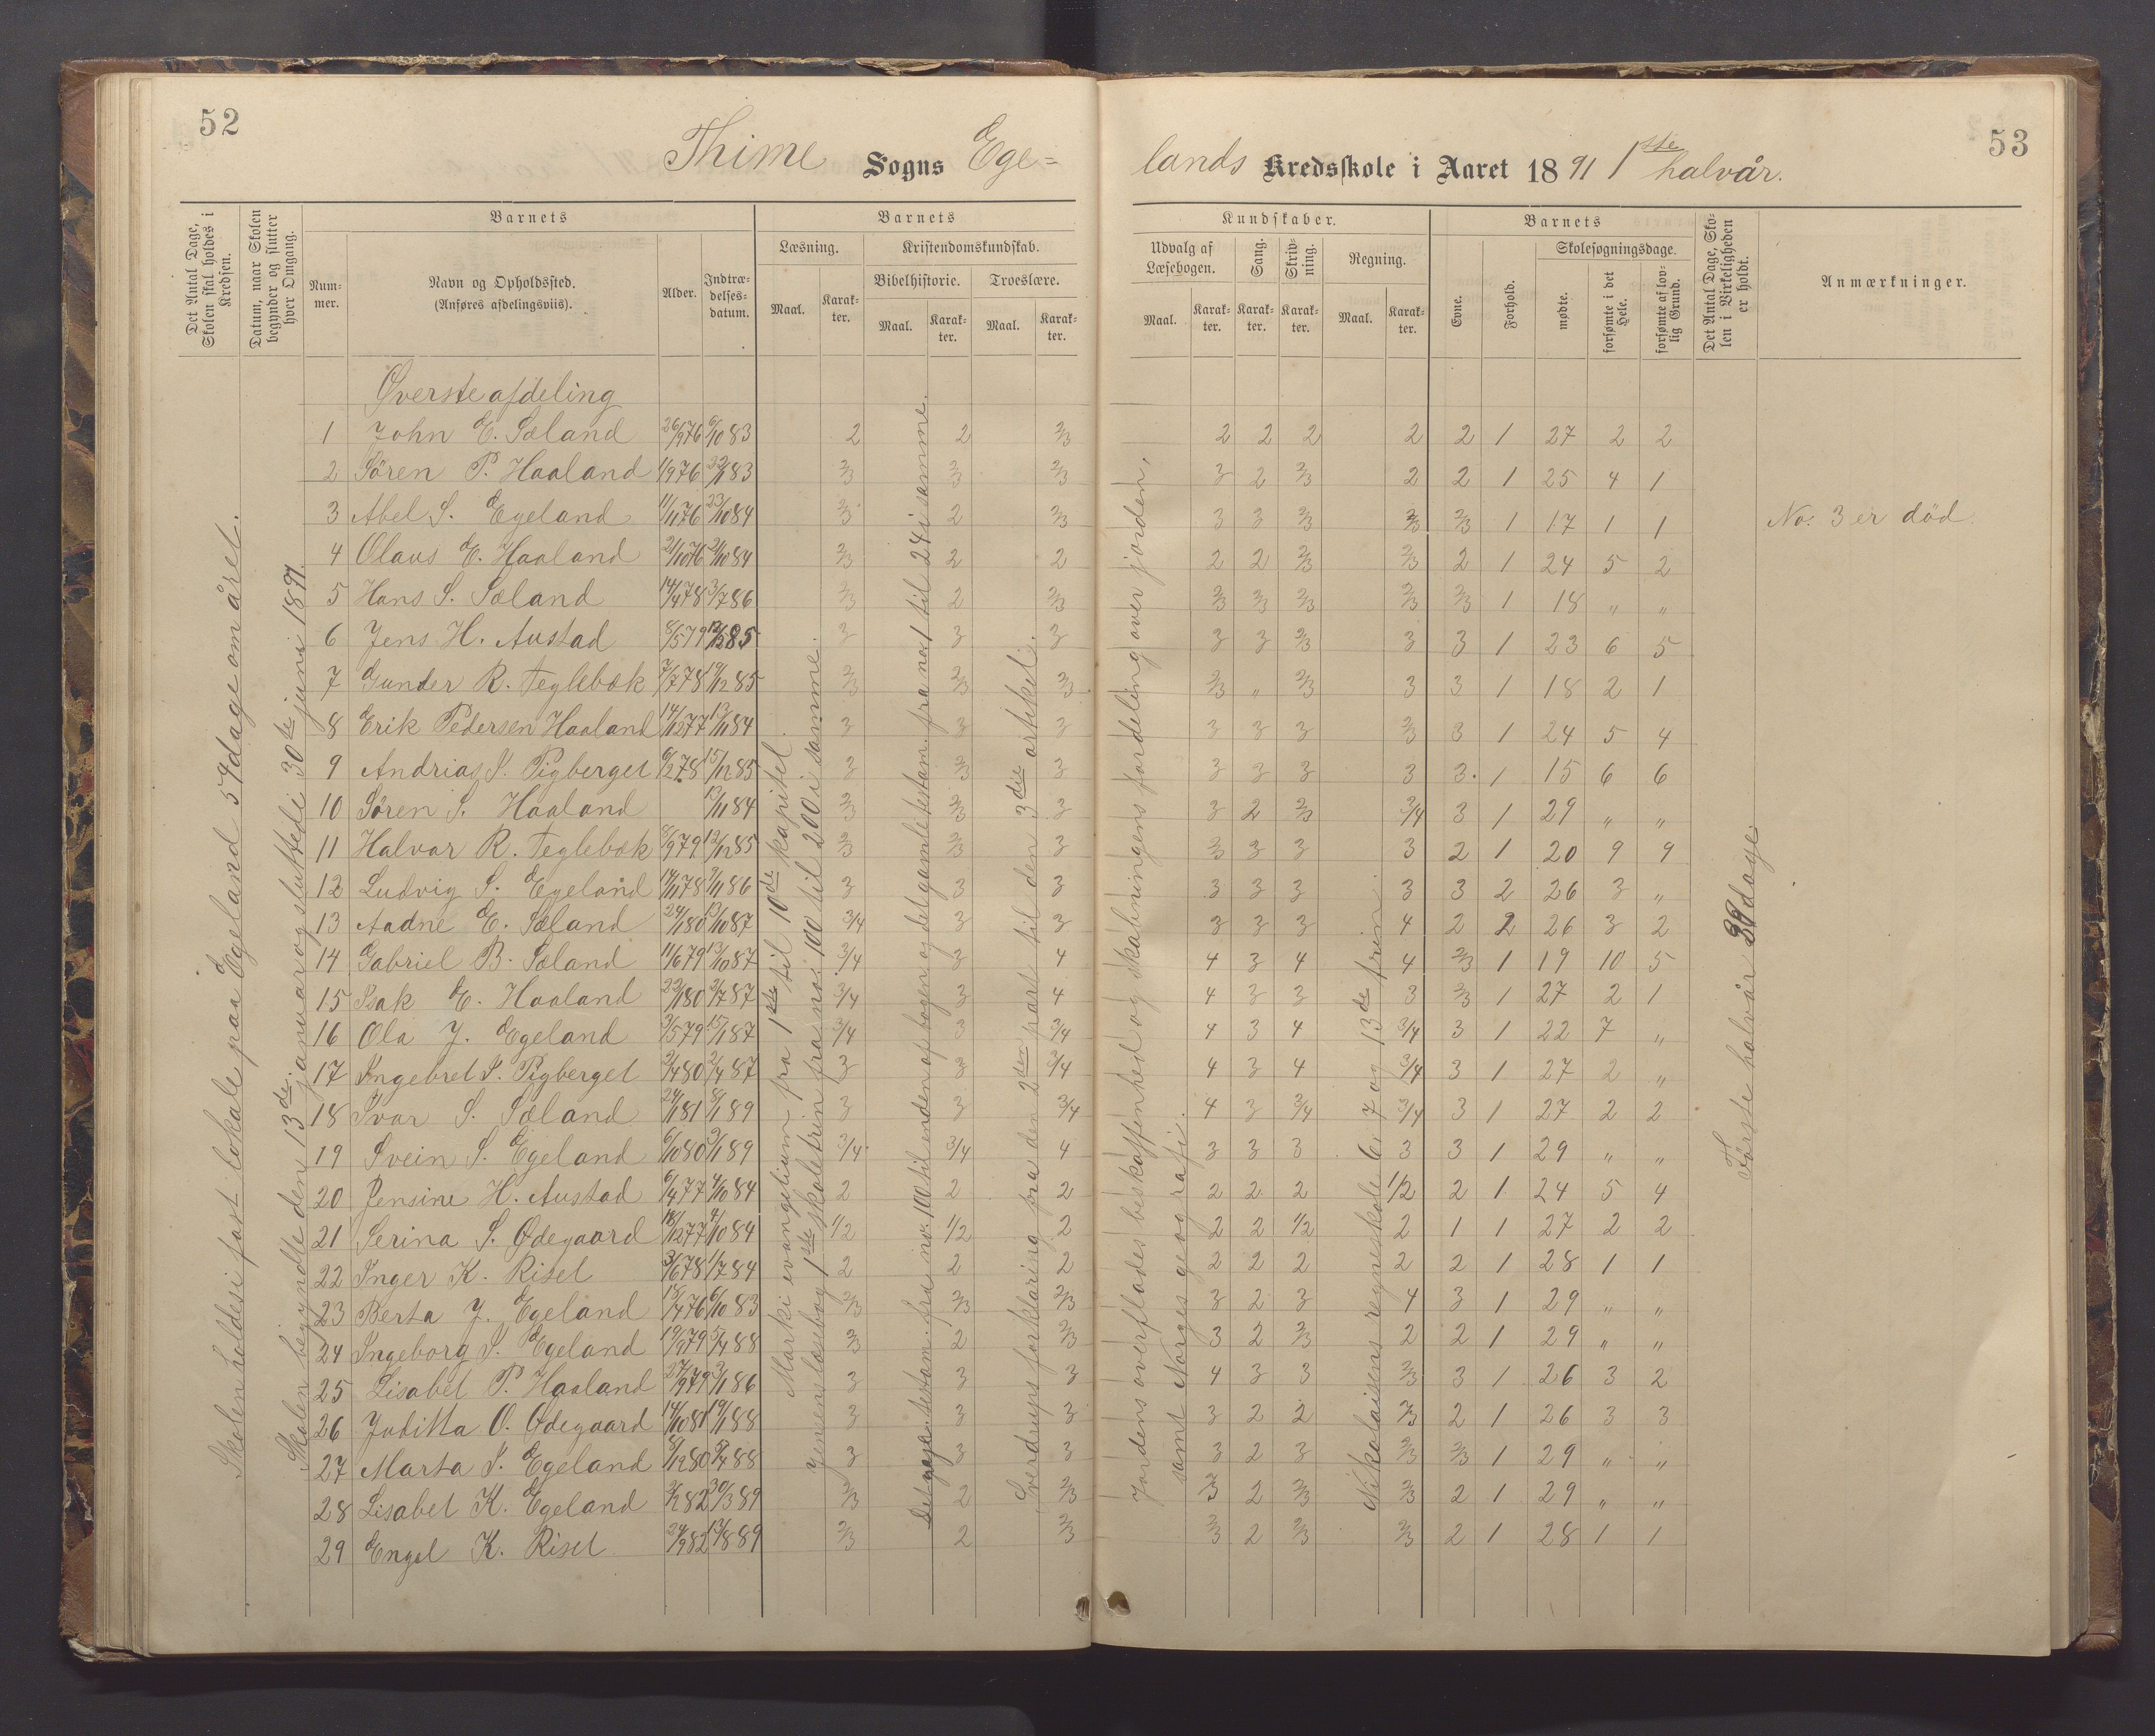 52
53
Thime Sogns Ege=
lands Kredsskole i Aaret 1891 1ste halvår.
Det Antal Dage, Skolen skal holdes i Kredsen.
Datum, naar Skolen begynder og slutter hver Omgang.
Barnets
Nummer.
Navn og Opholdssted.
(Anføres afdelingsviis).
Alder.
Indtrædelsesdatum.
Barnets
Læsning.
Maal.
Karakter.
Kristendomskundskab.
Bibelhistorie.
Maal.
Karakter.
Troeslære.
Maal.
Karakter.
Kundskaber.
Udvalg af Læsebogen.
Maal.
Karakter.
Sang.
Karakter.
Skrivning.
Karakter.
Regning.
Maal.
Karakter.
Barnets
Evne.
Forhold.
Skolesøgningsdage.
mødte.
forsømte i det Hele.
forsømte af lovlig Grund.
Det Antal Dage, Skolen i Virkeligheden er holdt.
Anmærkninger.
Skolen holdes i fast lokale paa Egeland 54 dage om året.
Skolen begyndte den 13de januar og sluttedi 30te juni 1891.
Øverste afdeling
1 John E. Sæland 26/9 76 6/10 83 2 2 2/3 2 2 2 2 2 1 27 2 2
2 Sören P. Haaland 1/9 76 22/1 83 2/3 2/3 2/3 3 2 2/3 2 2 1 25 4 1
3 Abel S. Egeland 11/11 76 23/10 84 2/3 2 2/3 3 3 2/3 2/3 2/3 1 17 1 1 No. 3 er död
4 Olaus E. Haaland 21/10 76 21/10 84 2/3 2 2 2 2 2/3 2/3 2 1 24 5 2
5 Hans S. Sæland 14/4 78 3/7 86 2/3 2 2/3 2/3 2/3 2/3 2/3 2/3 1 18 " "
6 Jens H. Austad 8/5 79 12/12 85 3 3 3 3 3 2/3 3 3 1 23 6 5
7 Gunder R. Teglebæk 7/7 78 19/12 85 2/3 2/3 2/3 2/3 " 2/3 3 3 1 18 2 1
8 Erik Pedersen Haaland 14/12 77 13/11 84 3 3 3 3 3 3 2/3 3 1 24 5 4
9 Andrias S. Pigberget 6/2 78 15/12 85 3 2/3 3 3 3 3 3 3 1 15 6 6
10 Sören S. Haaland 13/11 84 2/3 2/3 3 3 2 2/3 3/4 3 1 29 " "
11 Halvar R. Teglebæk 8/9 79 12/12 85 2/3 2/3 3 2/3 3 3 3 2 1 20 9 9
12 Ludvig S. Egeland 17/11 78 9/11 86 3 3 3 3 3 3 3 3 2 26 3 "
13 Aadne E. Sæland 24/1 80 13/10 87 3/4 3 3 3 3 3 4 2 2 26 3 2
14 Gabriel B. Sæland 11/6 79 13/10 87 3/4 3 4 4 3 4 4 2/3 1 19 10 5
15 Isak E. Haaland 22/1 80 2/7 87 3/4 3 4 4 3 3 3 2/3 1 27 2 1
16 Ola J. Egeland 3/5 79 15/1 87 3/4 3 3/4 4 3 4 3/4 3 1 22 7 "
17 Ingebret S. Pigberget 2/4 80 2/4 87 3 3 3/4 4 3 4 3/4 3 1 27 2 "
18 Ivar S. Sæland 24/1 81 8/1 89 3 3 3/4 4 3 3/4 3/4 3 1 27 2 2
19 Svein S. Egeland 6/10 80 3/1 89 3/4 3/4 4 3 3 3 3 3 1 29 " "
20 Jensine H. Austad 6/4 77 4/10 84 2 2 2 2 2 2 1/2 2 1 24 5 4
21 Serina S. Ødegaard 18/12 77 4/10 84 1/2 1/2 2 2 2 1/2 2 1 1 27 2 2
22 Inger K. Risel 3/6 78 1/7 84 2 2 2 2 2 2 2 2 1 28 1 1
23 Berta J. Egeland 18/4 76 6/10 83 2/3 2/3 2/3 3 2 3 4 3 1 29 " "
24 Ingeborg S. Egeland 19/6 79 5/4 88 2/3 2 2/3 3 2 2/3 2 2 1 29 " "
25 Lisabet P. Haaland 27/9 79 3/1 86 3 3 3 4 3 3 2/3 3 1 26 3 2
26 Juditta O. Ødegaard 14/10 81 19/1 88 3 3 3 3 2 2 2/3 2 1 26 3 3
27 Marta S. Egeland 9/12 80 5/4 88 3 3 3 3 2 3 2/3 2/3 1 29 " "
28 Lisabet K. Egeland 2/2 82 30/3 89 2/3 2 2/3 2/3 2 2/3 2/3 2 1 29 " "
29 Engel K. Risel 24/9 82 12/8 89 2/3 2 2/3 2/3 2 2/3 2/3 2 1 28 1 1
Marki evangelium fra 1ste til 10de kapitel.
Jensens læsebog 1ste skoletrin fra no. 100 til 200 i samme.
Det nye testam. fra no. 100 til enden af bogen og det gamle testam. fra no 1 til 24 i samme.
Sverdrups forklaring fra den 2den part til den 3die artikel.
Jordens overflades beskaffenhed og skabningens fordeling over jorden,
samt Norges geografi.
Nikolaisens regneskole 6, 7 og 13de trin
Første halvår 39 dage.